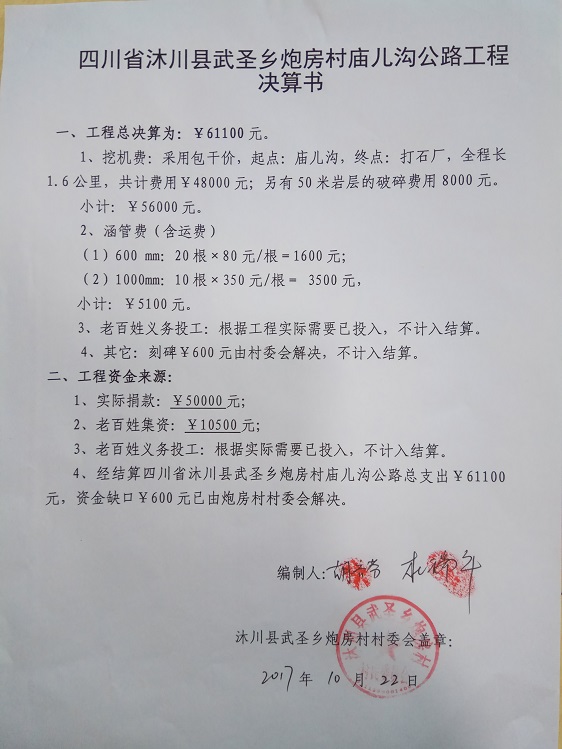 四川省沐川县武圣乡炮房村庙儿沟公路工程
决算书
一、工程总决算为：￥61100 元。
1、挖机费：采用包干价，起点：庙儿沟，终点：打石厂，全程长
1.6 公里，共计费用￥48000 元；另有 50 米岩层的破碎费用 8000 元。
小计：￥56000 元。
2、涵管费（含运费）
（1）600 mm：20 根×80 元/根＝1600 元；
（2）1000mm：10 根×350 元/根＝ 3500 元，
小计：￥5100 元。
3、老百姓义务投工：根据工程实际需要已投入，不计入结算。
4、其它：刻碑￥600 元由村委会解决，不计入结算。
二、工程资金来源：
1、实际捐款：￥50000 元；
2、老百姓集资：￥10500 元；
3、老百姓义务投工：根据实际需要已投入，不计入结算。
4、经结算四川省沐川县武圣乡炮房村庙儿沟公路总支出￥61100
元，资金缺口￥600 元已由炮房村村委会解决。
编制人：胡
沐川县武圣乡炮房村村委会盖章：
2017 年 10 月 22 日